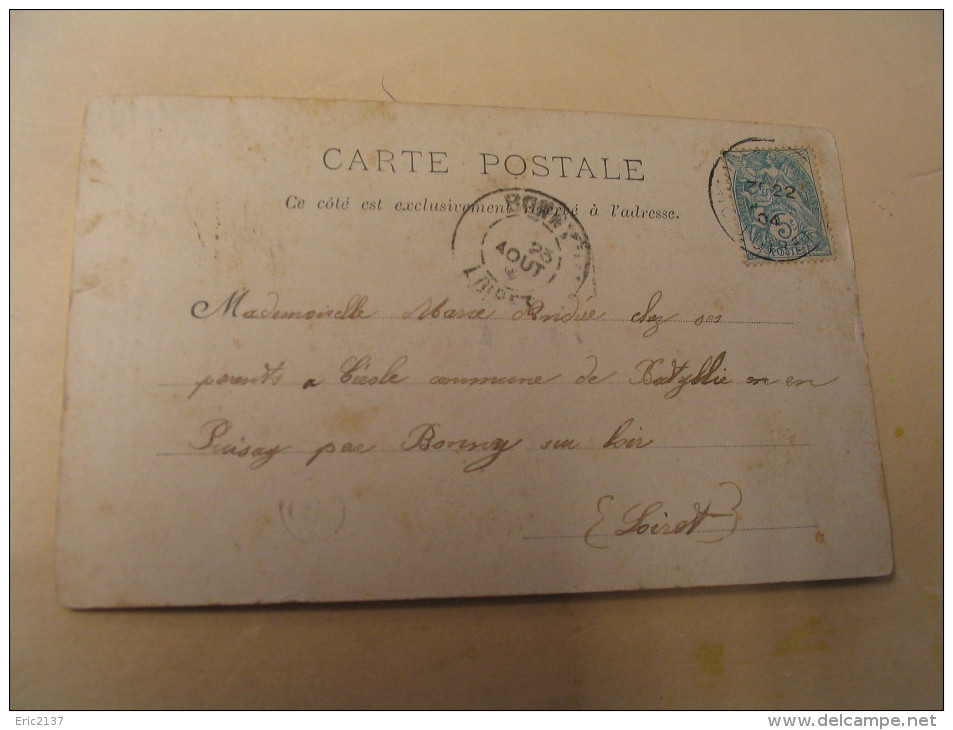 CARTE POSTALE
Ce côté est exclusivement réservé à l'adresse.
22
04
5c
POSTES
BONNY
23
AOUT
LOIRET
Mademoiselle Marie Andrée chez ses
parents a commune de en
Puisay par Bonny sur loir
{Loiret}
Eric2137
www.delcampe.net